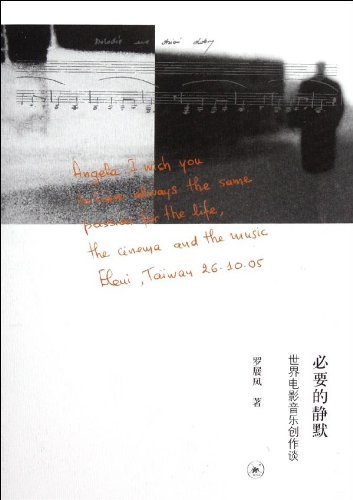 Angela I wish you
to have always the same
passion for the life,
the cinema and the music
Eleni, Taiwan 26-10-05
必要的静默
世界电影音乐创作谈
罗展凤 著